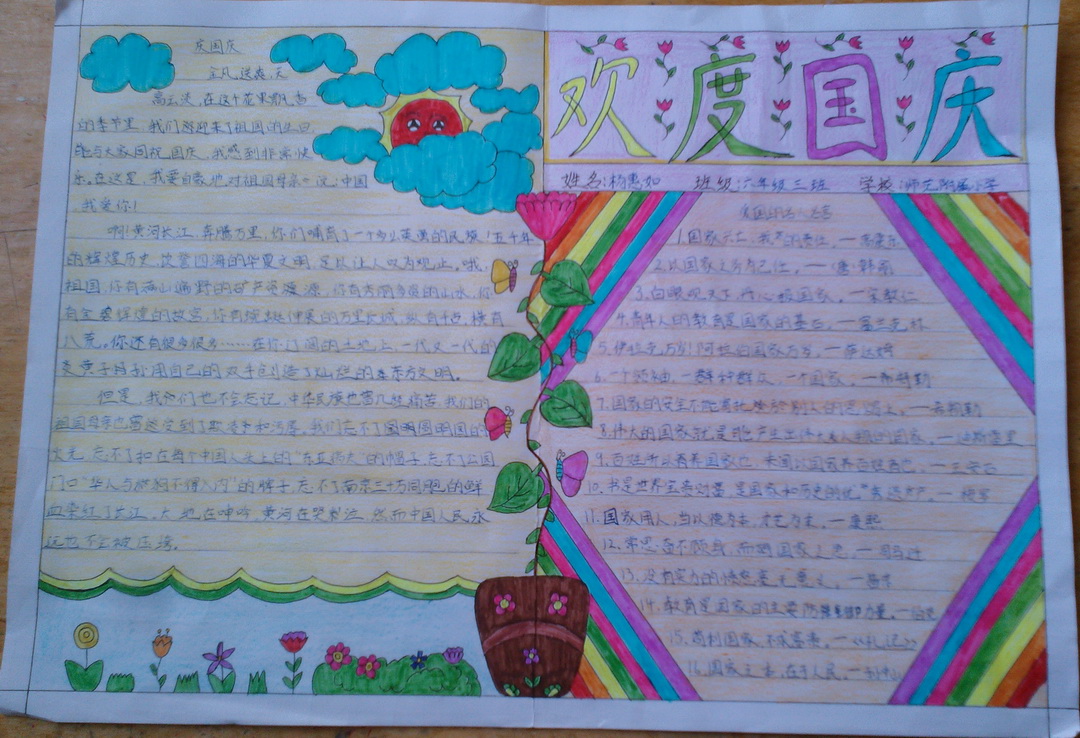 庆国庆
金风送爽,天
高云淡,在这个花果飘香
的季节里,我们迎来了祖国的生日
能与大家同祝国庆,我感到非常快
乐。在这里,我要自豪地对祖国母亲说:中国
我爱你!
啊!黄河长江,奔腾万里,你们哺育了一个多么英勇的民族!五千年
的辉煌历史,饮誉四海的华夏文明,足以让人叹为观止。哦,
祖国,你有满山遍野的矿产资源,你有秀丽多姿的山水,你
有金碧辉煌的故宫,你有蜿蜒伸展的万里长城,纵有千古,横有
八荒。你还有很多很多……在你辽阔的土地上,一代又一代的
炎黄子孙用自己的双手创造了灿烂的东方文明。
但是,我们也不会忘记,中华民族也曾几经痛苦,我们的
祖国母亲也曾遭受到了欺凌和污辱。我们忘不了圆明园的
火光,忘不了扣在每个中国人头上的“东亚病夫”的帽子,忘不了公园
门口“华人与狗不得入内”的牌子,忘不了南京三十万同胞的鲜
血染红了长江。大地在呻吟,黄河在哭泣,然而中国人民永
远也不会被压垮。
欢度国庆
姓名:杨惠如 班级:六年级三班 学校:师范附属小学
爱国的名人名言
1.国家兴亡,我的责任。—
2.以国家之务为己任。—(唐·韩愈
3.白眼观天下,丹心报国家。—宋教仁
4.青年人的教育是国家的基石。—富兰克林
5.伊拉克万岁!阿拉伯国家万岁。—萨达姆
6.一个领袖,一群种群众,一个国家。—希特勒
7.国家的安全不能寄托于别人的恩赐上。—希特勒
8.伟大的国家就是能产生伟大人物的国家。—迪斯雷里
9.百姓所以养国家也,未闻以国家养百姓者也。—王安石
10.书是世界宝贵财富,是国家和历史的优秀遗产。—梭罗
11.国家用人,当以德为本,才艺为末。—康熙
12.常思奋不顾身,而殉国家之急。—司马迁
13.没有实力的愤怒毫无意义。—
14.教育是国家的主要防御力量。—
15.苟利国家,不求富贵。—《礼记》
16.国家之本,在于人民。—孙中山